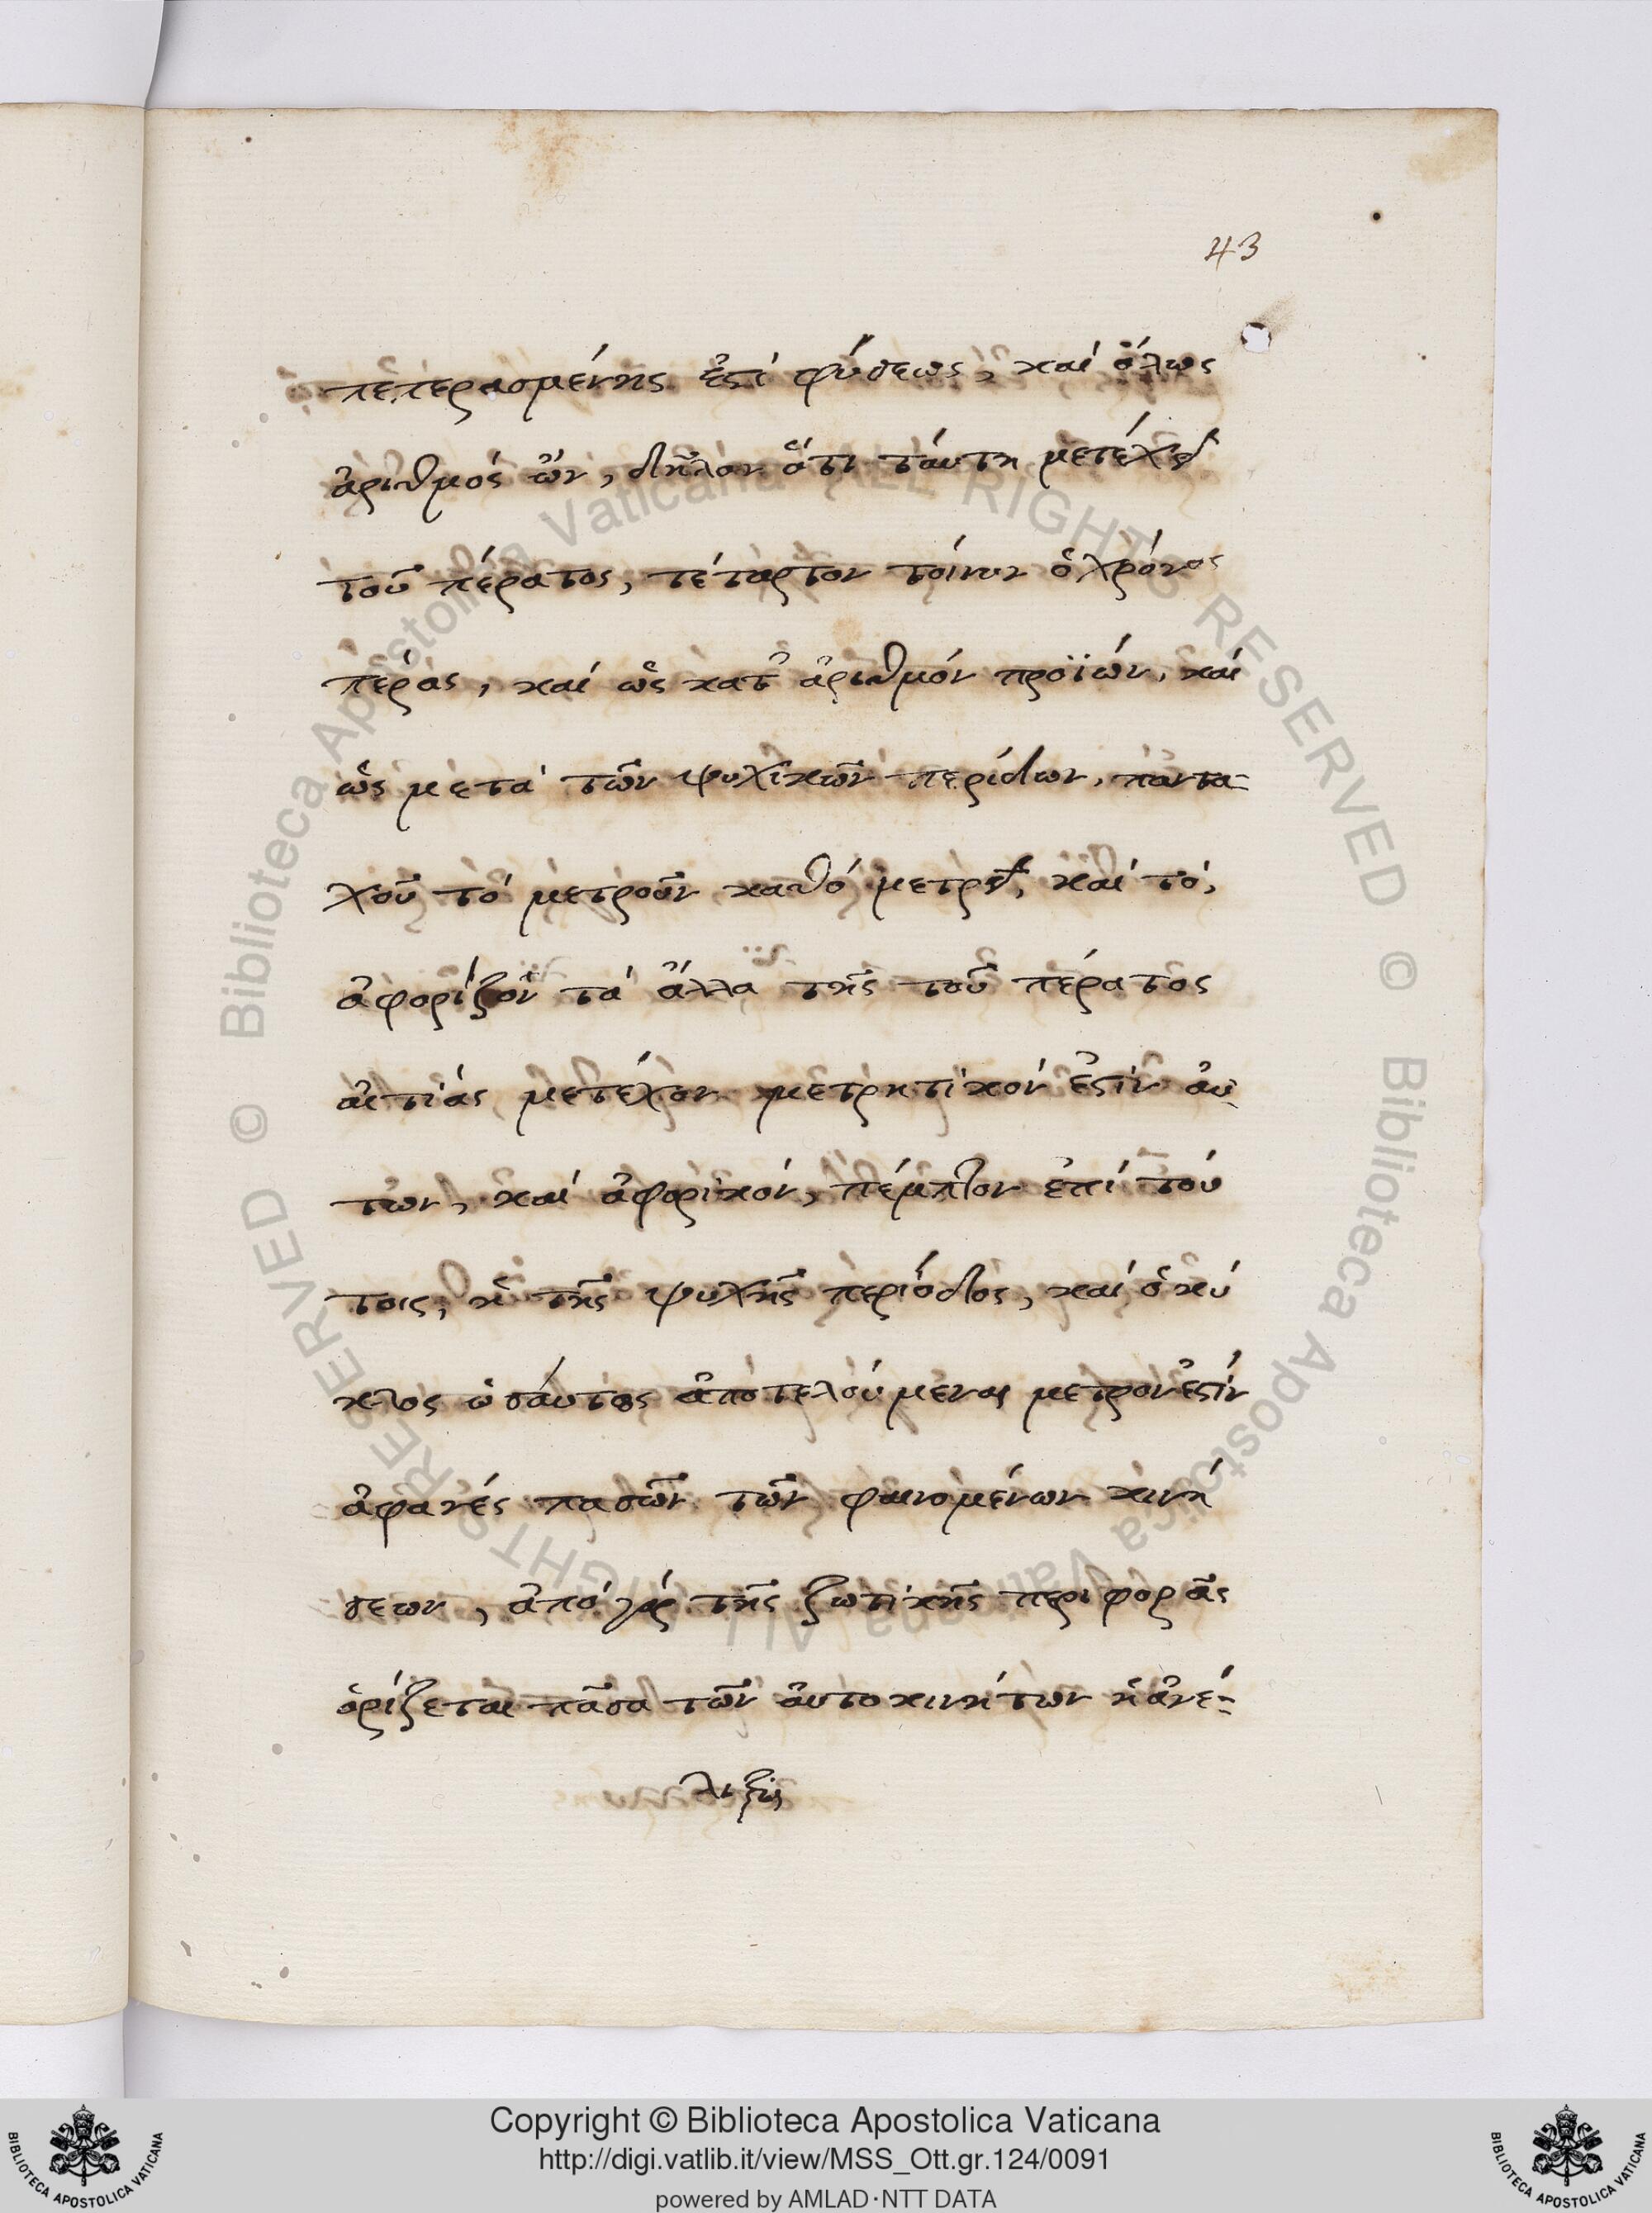 43
πεπερασμένης ἐστὶ φύσεως, καὶ ὅλως
ἀριθμός ὤν, δῆλον ὅτι ταύτη μετέχει
τοῦ πέρατος, τέταρτον τοίνυν ὁ χρόνος
πέρας, καί ὡς κατ' ἀριθμόν προϊών, καί
ὡς μετά τῶν ψυχικῶν περίδων, πάντα-
χοῦ τό μετροῦν καθό μετρεῖ, καί τό,
ἀφορίζον τά ἄλλα τῆς τοῦ πέρατος
αἰτίας μετέχον μετρητικόν ἐστίν αὐ-
των, καί ἀφορικόν, πέμπτον ἐπί τού
τοις, ἡ τῆς ψυχῆς περίοδος, καί ὁ κύ
κλος ὡσάυτος ἀποτελούμενος μετρον ἐστίν
ἀφανές πασῶν τῶν φαινομένων κινή
σεων, ἀπό γάρ τῆς ζωτικῆς περιφορᾶς
ὁρίζεται πᾶσα τῶν ἀυτοκινήτων ἡ ἀνέ-
λιξις
Copyright © Biblioteca Apostolica Vaticana
http://digi.vatlib.it/view/MSS_Ott.gr.124/0091
powered by AMLAD·NTT DATA
BIBLIOTECA APOSTOLICA VATICANA
BIBLIOTECA APOSTOLICA VATICANA
© Biblioteca Apostolica Vaticana ALL RIGHTS RESERVED © Biblioteca Apostolica Vaticana ALL RIGHTS RESERVED